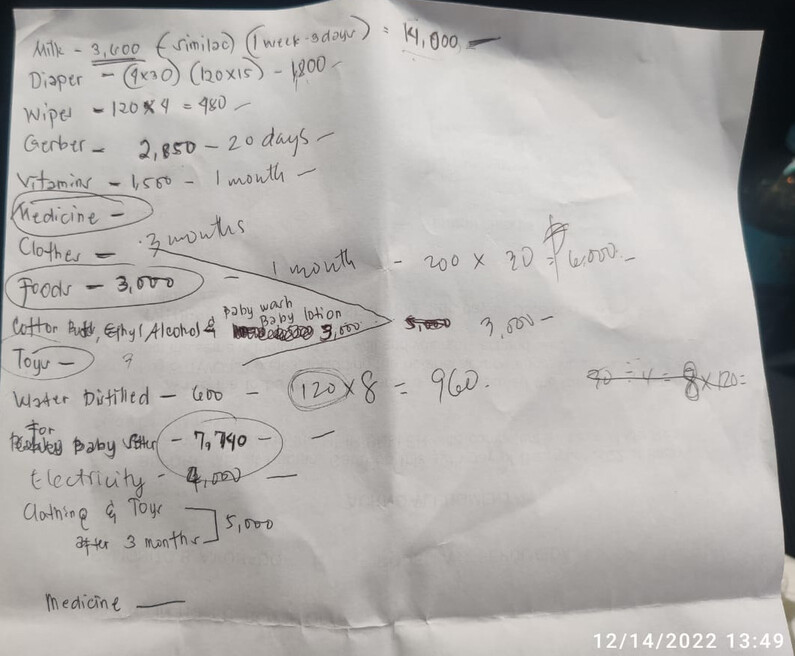 Milk - 3,600 (similac) (1 week - 3 days) = 14,000 -
Diaper - (4x30) (120x15) - 1,800 -
Wipes - 120 x 4 = 480 -
Gerber - 2,850 - 20 days -
Vitamins - 1,500 - 1 month -
Medicine -
Clothes - 3 months
Foods - 3,000 - 1 month - 200 x 30 = ₱6,000 -
Cotton Buds, Ethyl Alcohol & Baby wash Baby lotion 3,000 3,000 -
Toys - ?
Water Distilled - 600 - 120 x 8 = 960.
For Baby Sitter - 7,740 - -
Electricity - 4,000 -
Clothing & Toys
after 3 months ] 5,000
Medicine -
12/14/2022 13:49